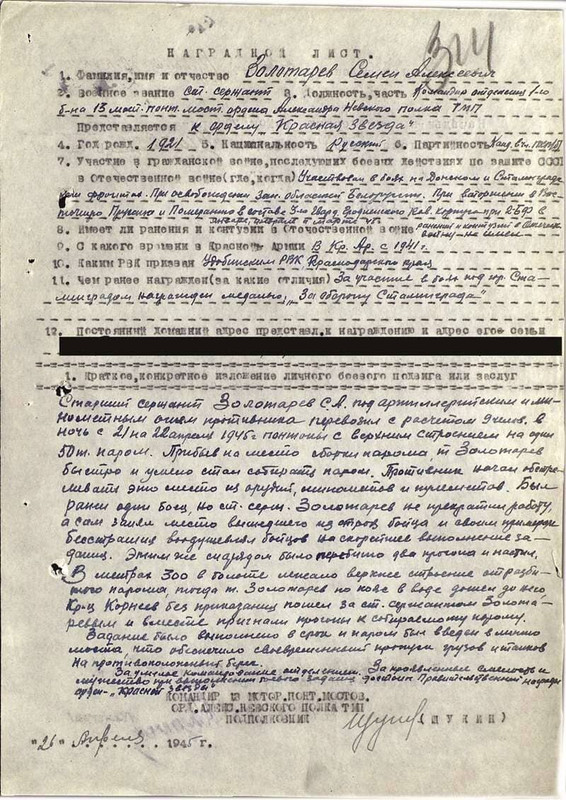 314
НАГРАДНОЙ ЛИСТ.
1. Фамилия,имя и отчество Золотарев Семен Алексеевич
2. Военное звание ст. сержант 3. Должность,часть Командир отделения 1-го
б-на 13 мот. понт. мост. ордена Александра Невского полка РГК
Представляется к ордену "Красная Звезда"
4. Год рожд. 1921 5. Национальность Русский 6. Партийность Канд. в чл. ВКП(б)
7. Участие в гражданской войне,последующих боевых действиях по защите СССР
в Отечественной войне(где,когда) Участвовал в боях на Донском и Сталинград-
ском фронтах. При освобождении Зап. областей Белоруссии. При вторжении в Вос-
точную Пруссию и Померанию в составе 3го Гвард. Гродненского Кав. Корпуса при 2 БФ в
8. Имеет ли ранения и контузии в Отечественной войне ранений и контузий в Отечеств.
войну - не имеет
9. С какого времени в Красной Армии В Кр. Ар. с 1941 г.
10. Каким РВК призван Удобинским РВК, Краснодарского края
11. Чем ранее награжден(за какие отличия) За участие в боях под гор. Ста-
линградом награжден медалью „За оборону Сталинграда"
12. Постоянный домашний адрес представл.к награждению и адрес его семьи
1. Краткое,конкретное изложение личного боевого подвига или заслуг
Старший сержант Золотарев С.А. под артиллерийским и ми-
нометным огнем противника перевозил с расчетом 9 челов. в
ночь с 21 на 22 апреля 1945 г понтоны с верхним строением на один
50 т. паром. Прибыв на место сборки парома, т Золотарев
быстро и умело стал собирать паром. Противник начал обстре-
ливать это место из орудий, минометов и пулеметов. Был
ранен один боец, но ст. серж. Золотарев не прекратил работу,
а сам занял место вышедшего из строя бойца и своим примером
бесстрашия воодушевлял бойцов на скорейшее выполнение за-
дания. Этим же снарядом было перебито два прогона и настил.
В метрах 300 в болоте лежало верхнее строение от разби-
того парома, тогда т. Золотарев по пояс в воде дошел до него,
Кр-ц Корнеев без приказания пошел за ст. сержантом Золота-
ревым и вместе пригнали прогоны к собираемому парому.
Задание было выполнено в срок и паром был введен в линию
моста, что обеспечило своевременный пропуск грузов и танков
на противоположенный берег.
За умелое командование отделением. За проявленные смелость и
мужество при выполнении боевого задания достоин Правительственной награды
орден - "Красной Звезды"
КОМАНДИР 13 МОТОР.ПОНТ.МОСТОВ.
ОРД.АЛЕКС.НЕВСКОГО ПОЛКА РГК
ПОДПОЛКОВНИК (ЩУКИН)
"26" Апреля 1945 г.